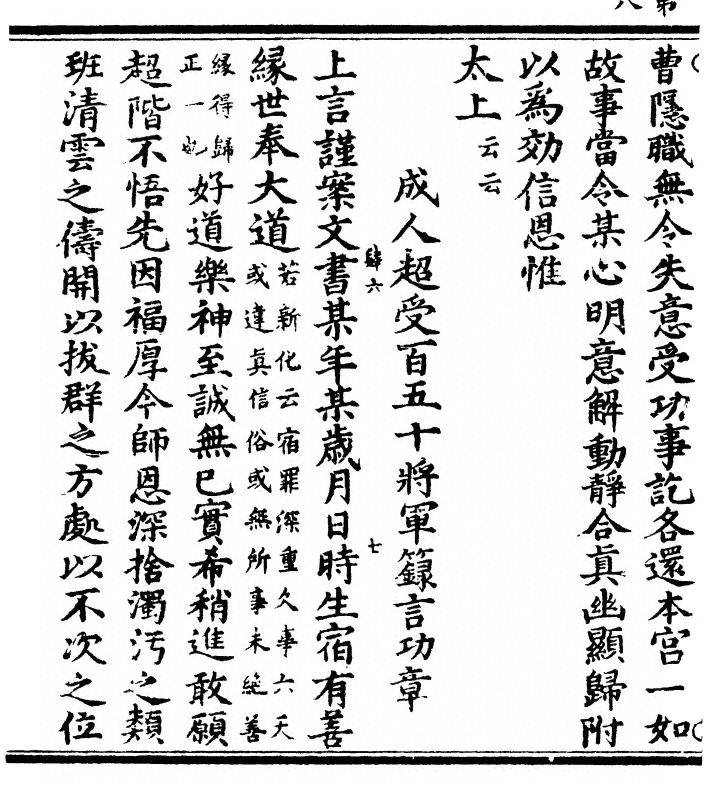 曹隱職無令失意受功事訖各還本宮一如
故事當令某心明意解動靜合眞幽顯歸附
以爲効信恩惟
太上云云
成人超受百五十將軍籙言功章
肆六
七
上言謹案文書某年某歲月日時生宿有善
緣世奉大道若新化云宿罪深重久事六天
或違眞信俗或無所事未絶善
緣得歸
正一也好道樂神至誠無已實希稍進敢願
超階不悟先因福厚今師恩深捨濁汚之類
班清雲之儔開以拔群之方處以不次之位